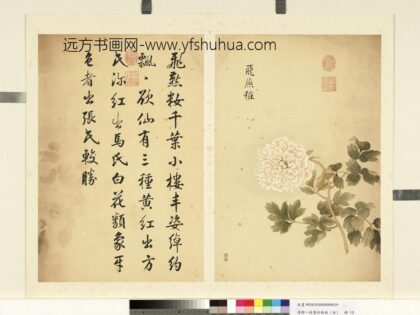 远方书画网-www.yfshuhua.com
飛燕粧
飛燕粧千葉小樓丰姿綽約
飄〻欲仙有三種黄紅出方
氏深紅出馬氏白花類象牙
色者出張氏較勝